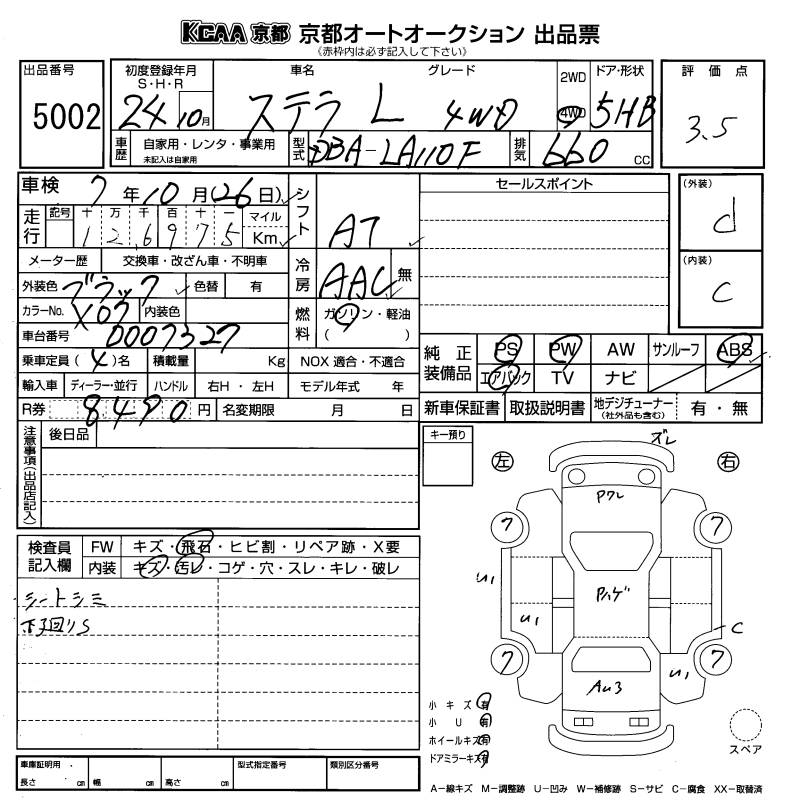 KCAA 京都 京都オートオークション 出品票
(赤枠内は必ず記入して下さい)
出品番号
5002
初度登録年月
S・H・R
24 10月
車名
グレード
ステラ L 4WD
2WD
4WD
ドア・形状
5HB
評価点
3.5
車歴
自家用・レンタ・事業用
未記入は自家用
型式
DBA-LA110F
排気
660 cc
車検
7年10月(26日)
シフト
AT
走行
記号 十 万 千 百 十 一 マイル
1 2 6 9 7 5 Km
メーター歴 交換車・改ざん車・不明車
冷房
AAC 無
外装色 ブラック 色替 有
カラーNo. X07 内装色
燃料
ガソリン・軽油
( )
車台番号 0007327
乗車定員 (4)名 積載量 Kg NOX 適合・不適合
輸入車 ディーラー・並行 ハンドル 右H・左H モデル年式 年
R券 8490円 名変期限 月 日
セールスポイント
(外装)
d
(内装)
C
純正装備品
PS PW AW サンルーフ ABS
エアバック TV ナビ
新車保証書 取扱説明書 地デジチューナー (社外品も含む) 有・無
注意事項(出品店記入)
後日品
キー預り
検査員記入欄
FW キズ・飛石・ヒビ割・リペア跡・X要
内装 キズ・汚レ・コゲ・穴・スレ・キレ・破レ
シートシミ
下回りS
左
右
ズレ
Pワレ
7
7
U1
Pハゲ
U1
C
7
7
U1
AU3
小キズ 有
小U 有
ホイールキズ 有
ドアミラーキズ 有
スペア
車庫証明用
長さ cm 幅 cm 高さ cm
型式指定番号
類別区分番号
A-線キズ M-調整跡 U-凹み W-補修跡 S-サビ C-腐食 XX-取替済